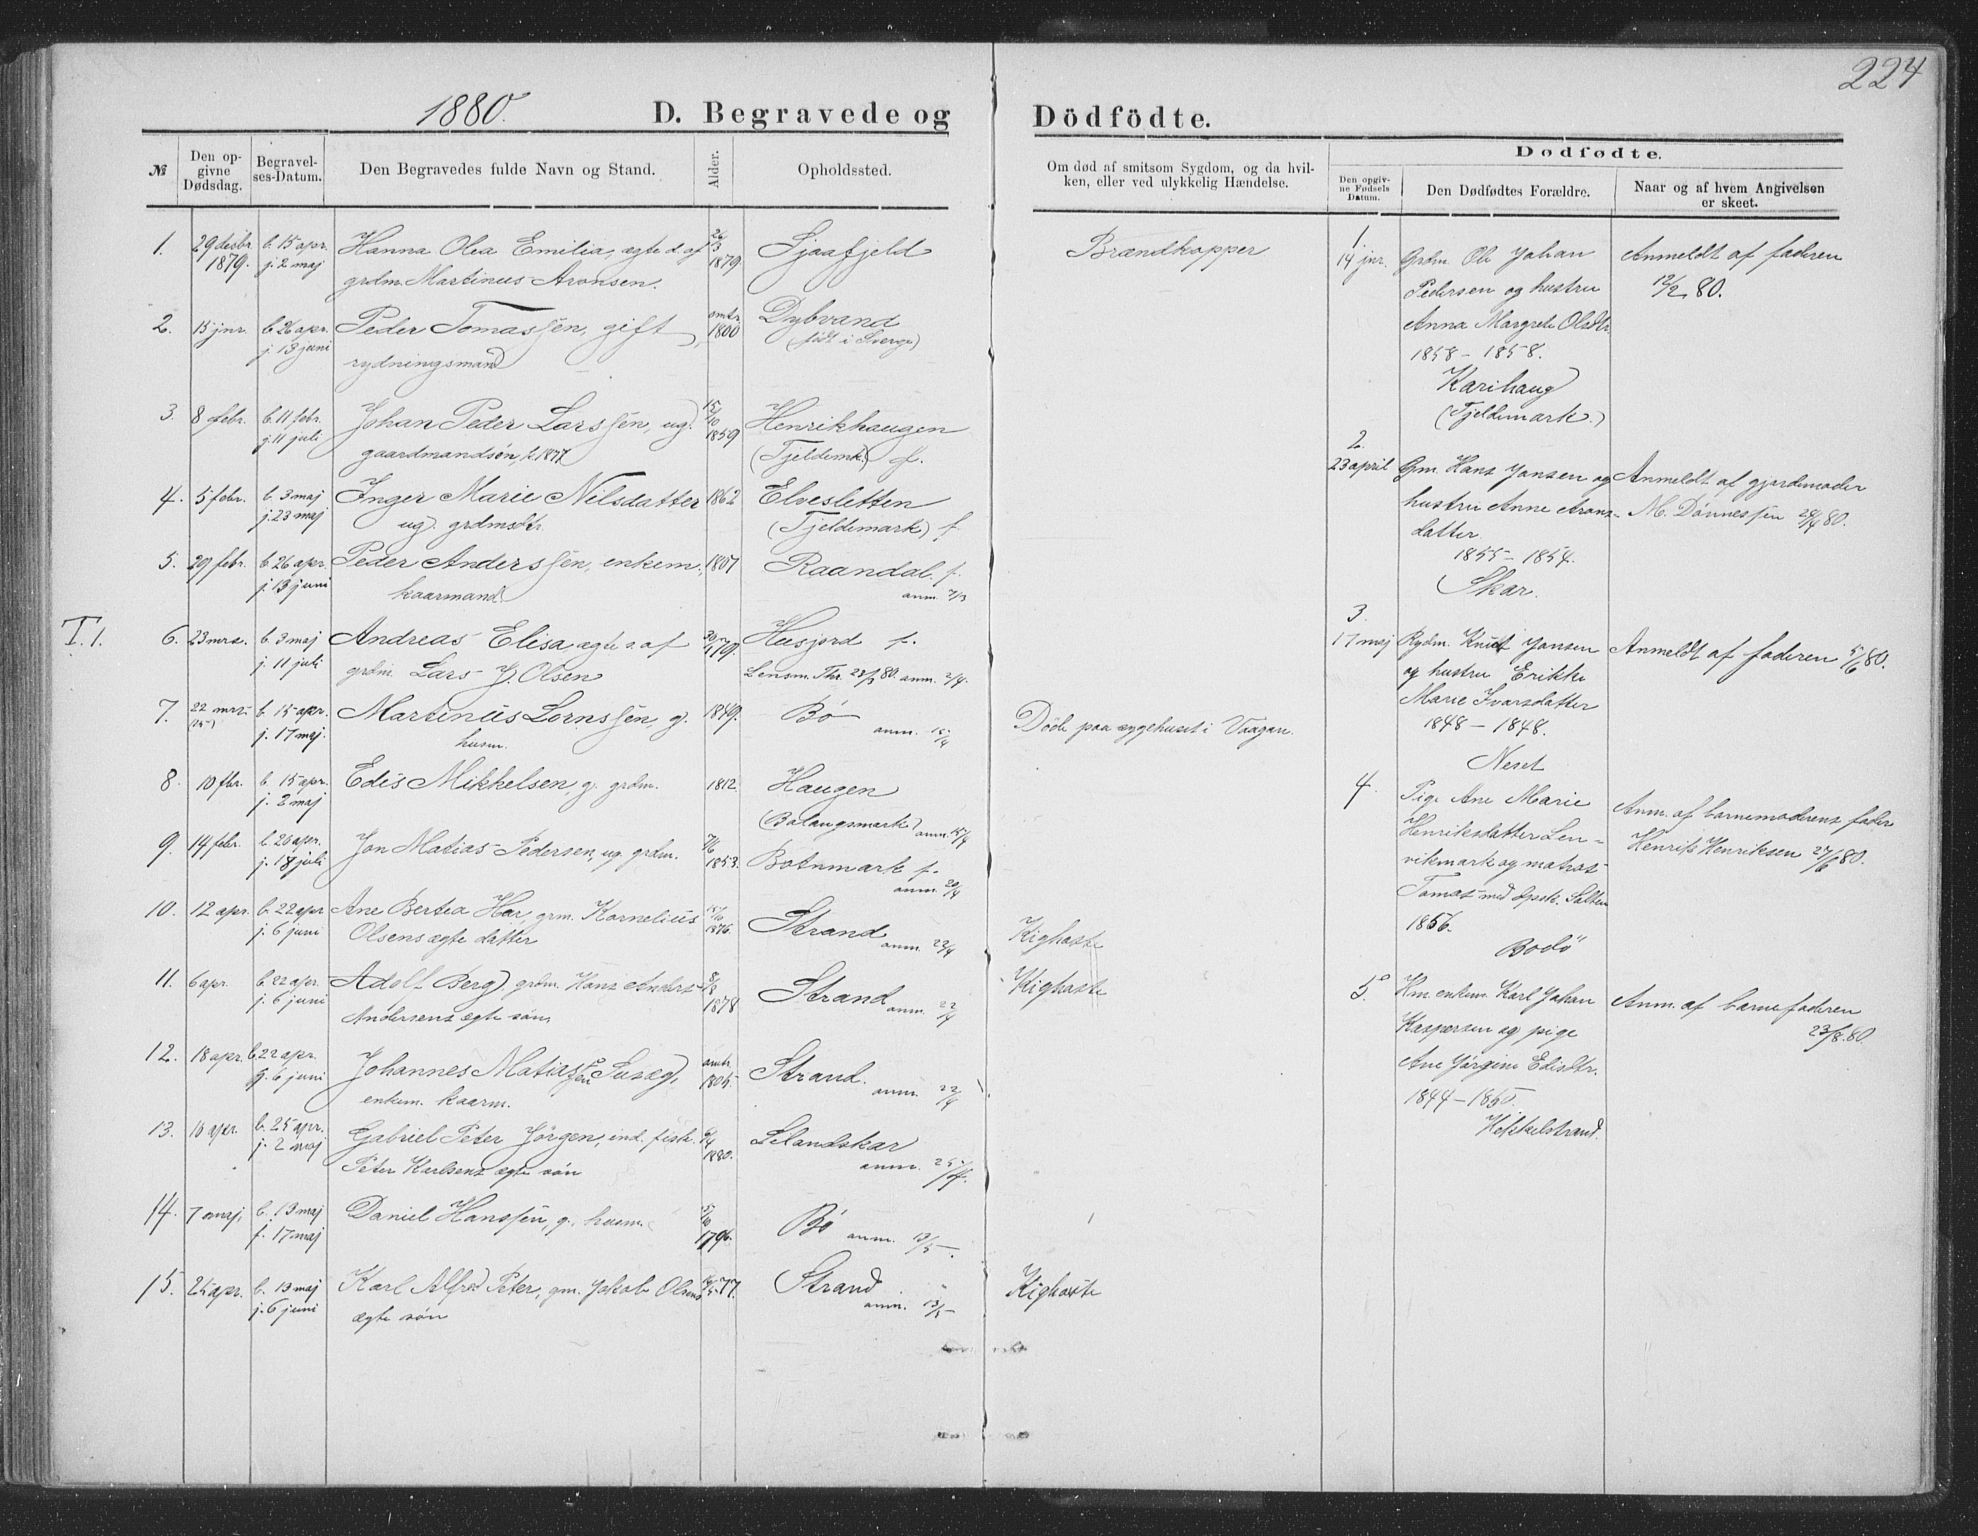 224
1880. D. Begravede og Dödfödte.
№ Den op-givne Dødsdag. Begravel-ses-Datum. Den Begravedes fulde Navn og Stand. Alder. Opholdssted.
Om død af smitsom Sygdom, og da hvil-
ken, eller ved ulykkelig Hændelse.
Dødfødte.
Den opgiv-ne Fødsels Datum. Den Dødfødtes Forældre. Naar og af hvem Angivelsen er skeet.
1. 29 desbr b. 15 apr. Hanna Olea Emilia, ægte d. af 26/3 Sjaafjeld Brændkopper
1879. j. 2 maj grdm. Martinus Aronsen. 1879
2. 15 jnr. b. 26 apr. Peder Tomassen, gift omtr. Dybvand
j. 13 juni rydningsmand 1800 (født i Sverge)
3. 8 febr. b. 11 febr. Johan Peder Larssen, ug. 15/10 Henrikhaugen
j. 11 juli gaardmandsøn, k. 1877 1859 (Tjeldemk.) f.
4. 5 febr. b. 3 maj Inger Marie Nilsdatter 1862 Elvesletten
j. 23 maj ug. grdmsdtr. (Tjeldemark) f.
5. 29 febr. b. 26 apr. Peder Anderssen, enkem. 1807 Raandal f.
j. 13 juni kaarmand. anm. 7/3
T. 1. 6. 23 mrs. b. 3 maj Andreas Elisa, ægte s. af 79. Husjord f.
j. 11 juli grdm. Lars J. Olsen Lensm. Thr. 23/3 80. anm. 2/4.
7. 22 mrs. b. 15 apr. Martinus Lornssen, g. 1849. Bø Døde paa sygehuset i Vaagan.
j. 17 maj. husm. anm. 15/4
8. 10 fbr. b. 15 apr. Edis Mikkelsen, g. grdm. 1812. Haugen
j. 2 maj (Balangsmark) anm. 15/4
9. 14 febr. b. 20 apr. Jon Matias Pedersen, ug. grdm. 7/6 Botnmark f.
j. 18 juli 1853. anm. 20/4
10. 12 apr. b. 22 apr Ane Bertea Har, grm. Kornelius Strand Kighoste
j. 6 juni Olsens ægte datter 1876. anm. 22/4
11. 6 apr. b. 22 apr. Adolf Berg, grdm. Hans Anders 8/8 Strand Kighoste
j. 6 juni Andersens ægte søn. 1878 anm. 22/4
12. 18 apr. b. 22 apr. Johannes Matiassen Suræg, omtr. Strand.
j. 6 juni enkem. kaarm. 1805. anm. 22/4
13. 10 apr. b. 25 apr. Gabriel Peter Jörgen, ind. fisk. Lelandskar
j. 2 maj Peter Karlsens ægte søn 1880. anm. 25/4 f.
14. 7 maj. b. 13 maj Daniel Hanssen, g. husm. Bø anm. 13/5.
f. 17 maj 1796.
15. 25 apr. b. 13 maj Karl Alfred Peter, gm. Jakob Olsens 77. Strand Kighoste
j. 6 juni ægte søn anm. 13/5
1
14 jnr. Grdm. Ole Johan Anmeldt af faderen
Pedersen og hustru 12/2 80.
Anna Margrete Olsdtr.
1858 - 1858.
Karihaug
(Tjeldemark.)
2.
23 april Gm. Hans Jansen og Anmeldt af gjordemoder
hustru Anne Arons- M. Dønnessen 29/4 80.
datter
1855 - 1854.
Skar.
3.
17 maj Rydm. Knut Jansen Anmeldt af faderen 5/6 80.
og hustru Erikke
Marie Ivarsdatter
1848 - 1848.
Neset
4. Pige Ane Marie Anm. af barnemoderens fader
Henriksdatter Len- Henrik Henriksen 27/6 80.
vikmark og matros
Tomas
1856.
Bodö
5. Hm. enkem. Karl Johan Anm. af barnefaderen
Kaspersen og pige 23/8. 80.
Ane Jørgine Edisdtr.
1844 - 1850.
Hekkelstrand.